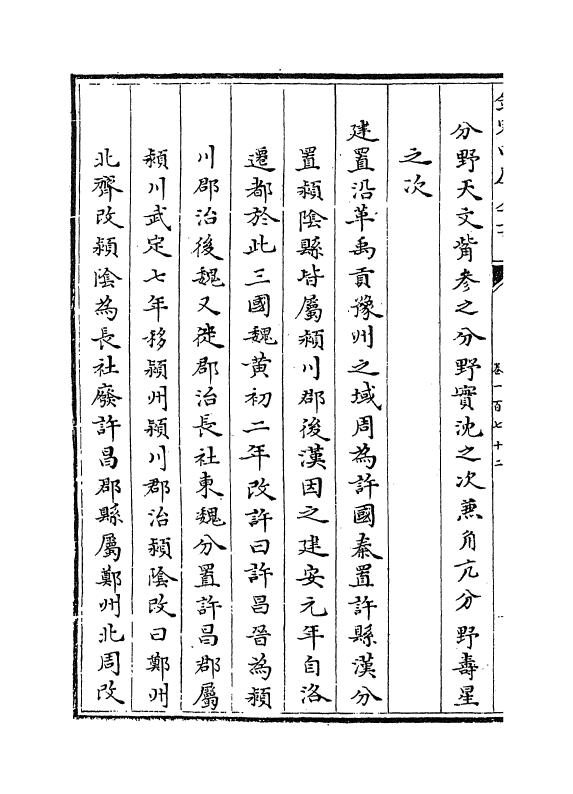 卷一百七十二
分野天文觜參之分野實沈之次兼角亢分野壽星
之次
建置沿革禹貢豫州之域周為許國秦置許縣漢分
置潁陰縣皆屬潁川郡後漢因之建安元年自洛
遷都於此三國魏黃初二年改許曰許昌晉為潁
川郡治後魏又徙郡治長社東魏分置許昌郡屬
潁川武定七年移潁州潁川郡治潁陰改曰鄭州
北齊改潁陰為長社廢許昌郡縣屬鄭州北周改